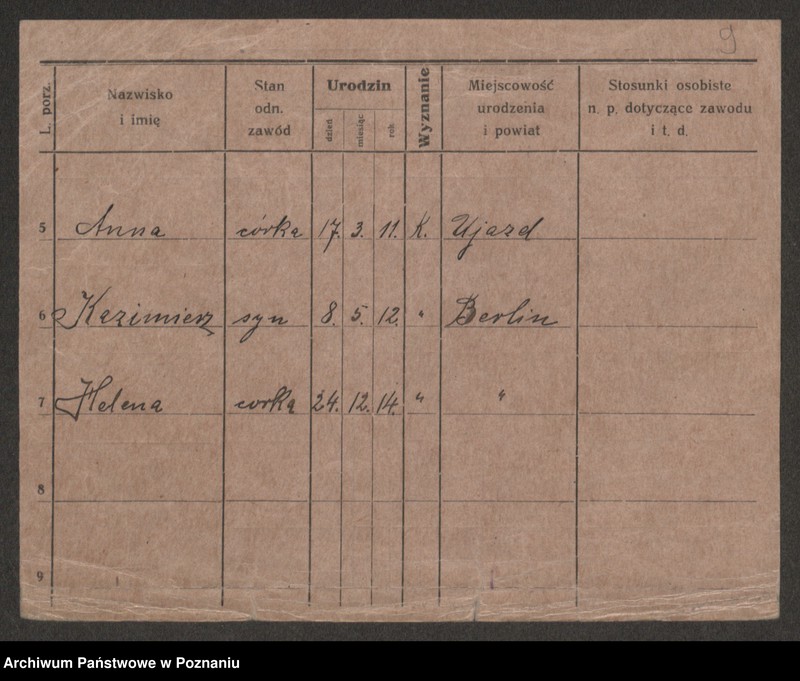 9
L. porz.
Nazwisko
i imię
Stan
odn.
zawód
Urodzin
dzień
miesiąc
rok
Wyznanie
Miejscowość
urodzenia
i powiat
Stosunki osobiste
n. p. dotyczące zawodu
i t. d.
5 Anna córka 17. 3. 11. K. Ujazd
6 Kazimierz syn 8. 5. 12. " Berlin
7 Helena corka 24. 12. 14. " "
8
9
Archiwum Państwowe w Poznaniu